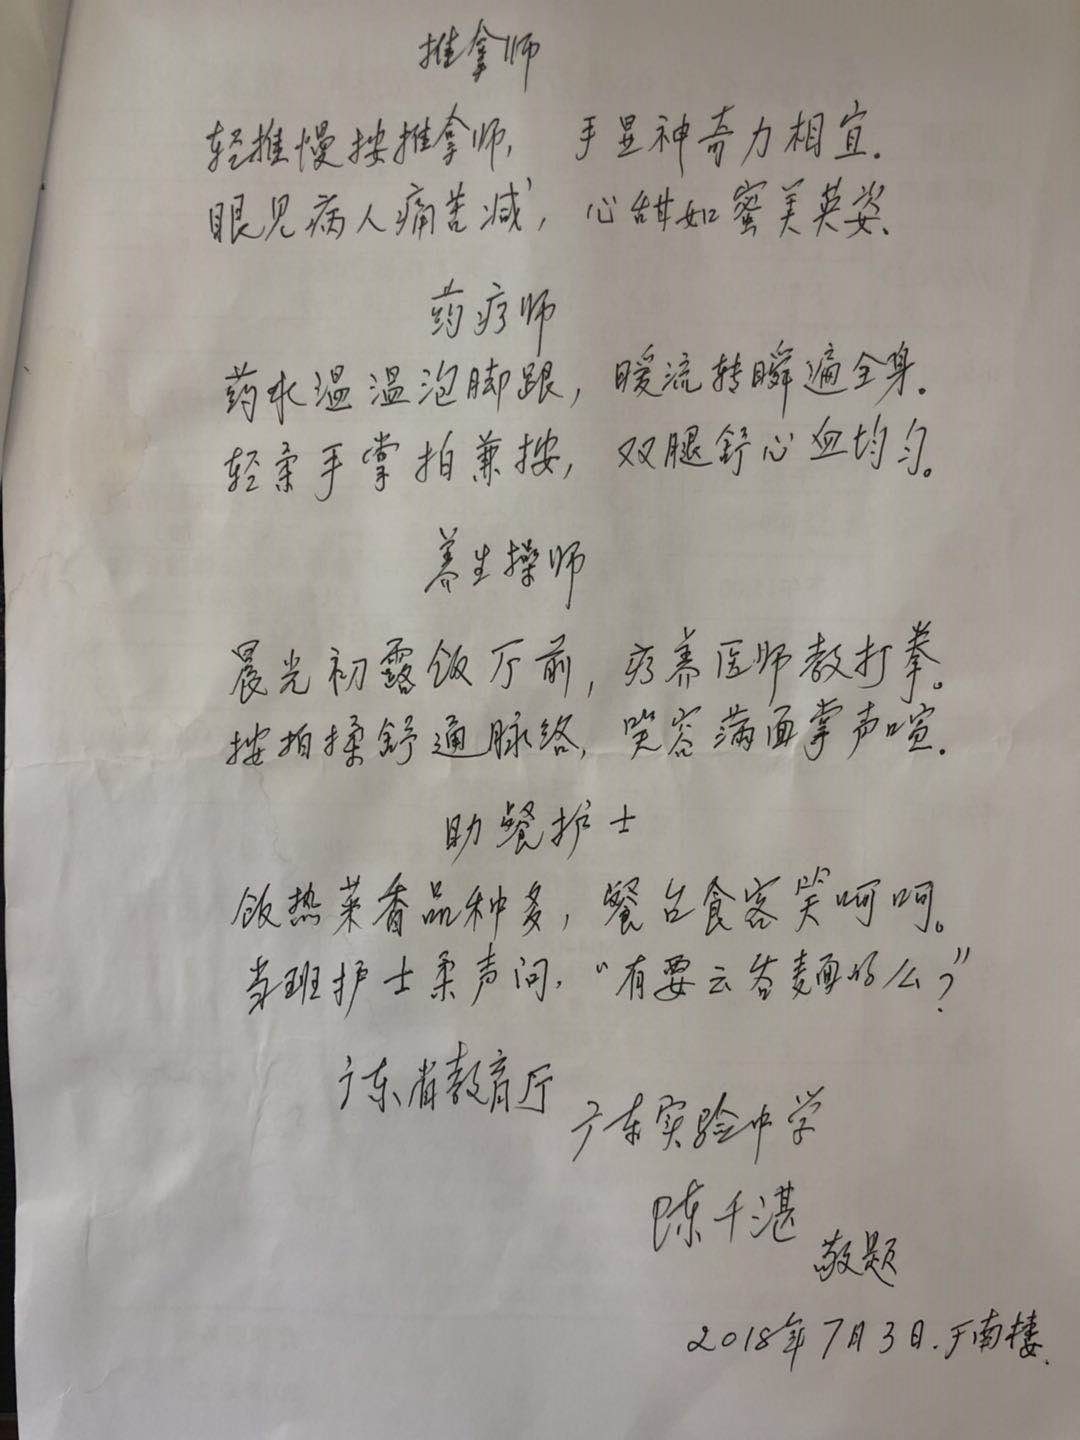 推拿师
轻推慢按推拿师， 手显神奇力相宜.
眼见病人痛苦减， 心甜如蜜美英姿.
药疗师
药水温温泡脚跟， 暖流转瞬遍全身.
轻柔手掌拍兼按， 双腿舒心血均匀。
养生操师
晨光初露饭厅前，疗养医师教打拳。
按拍揉舒通脉络，笑容满面掌声喧.
助餐护士
饭热菜香品种多，餐台食客笑呵呵。
当班护士柔声问.“有要云吞麵的么？”
广东省教育厅
广东实验中学
陈千湛
敬题
2018年7月3日.于南楼.